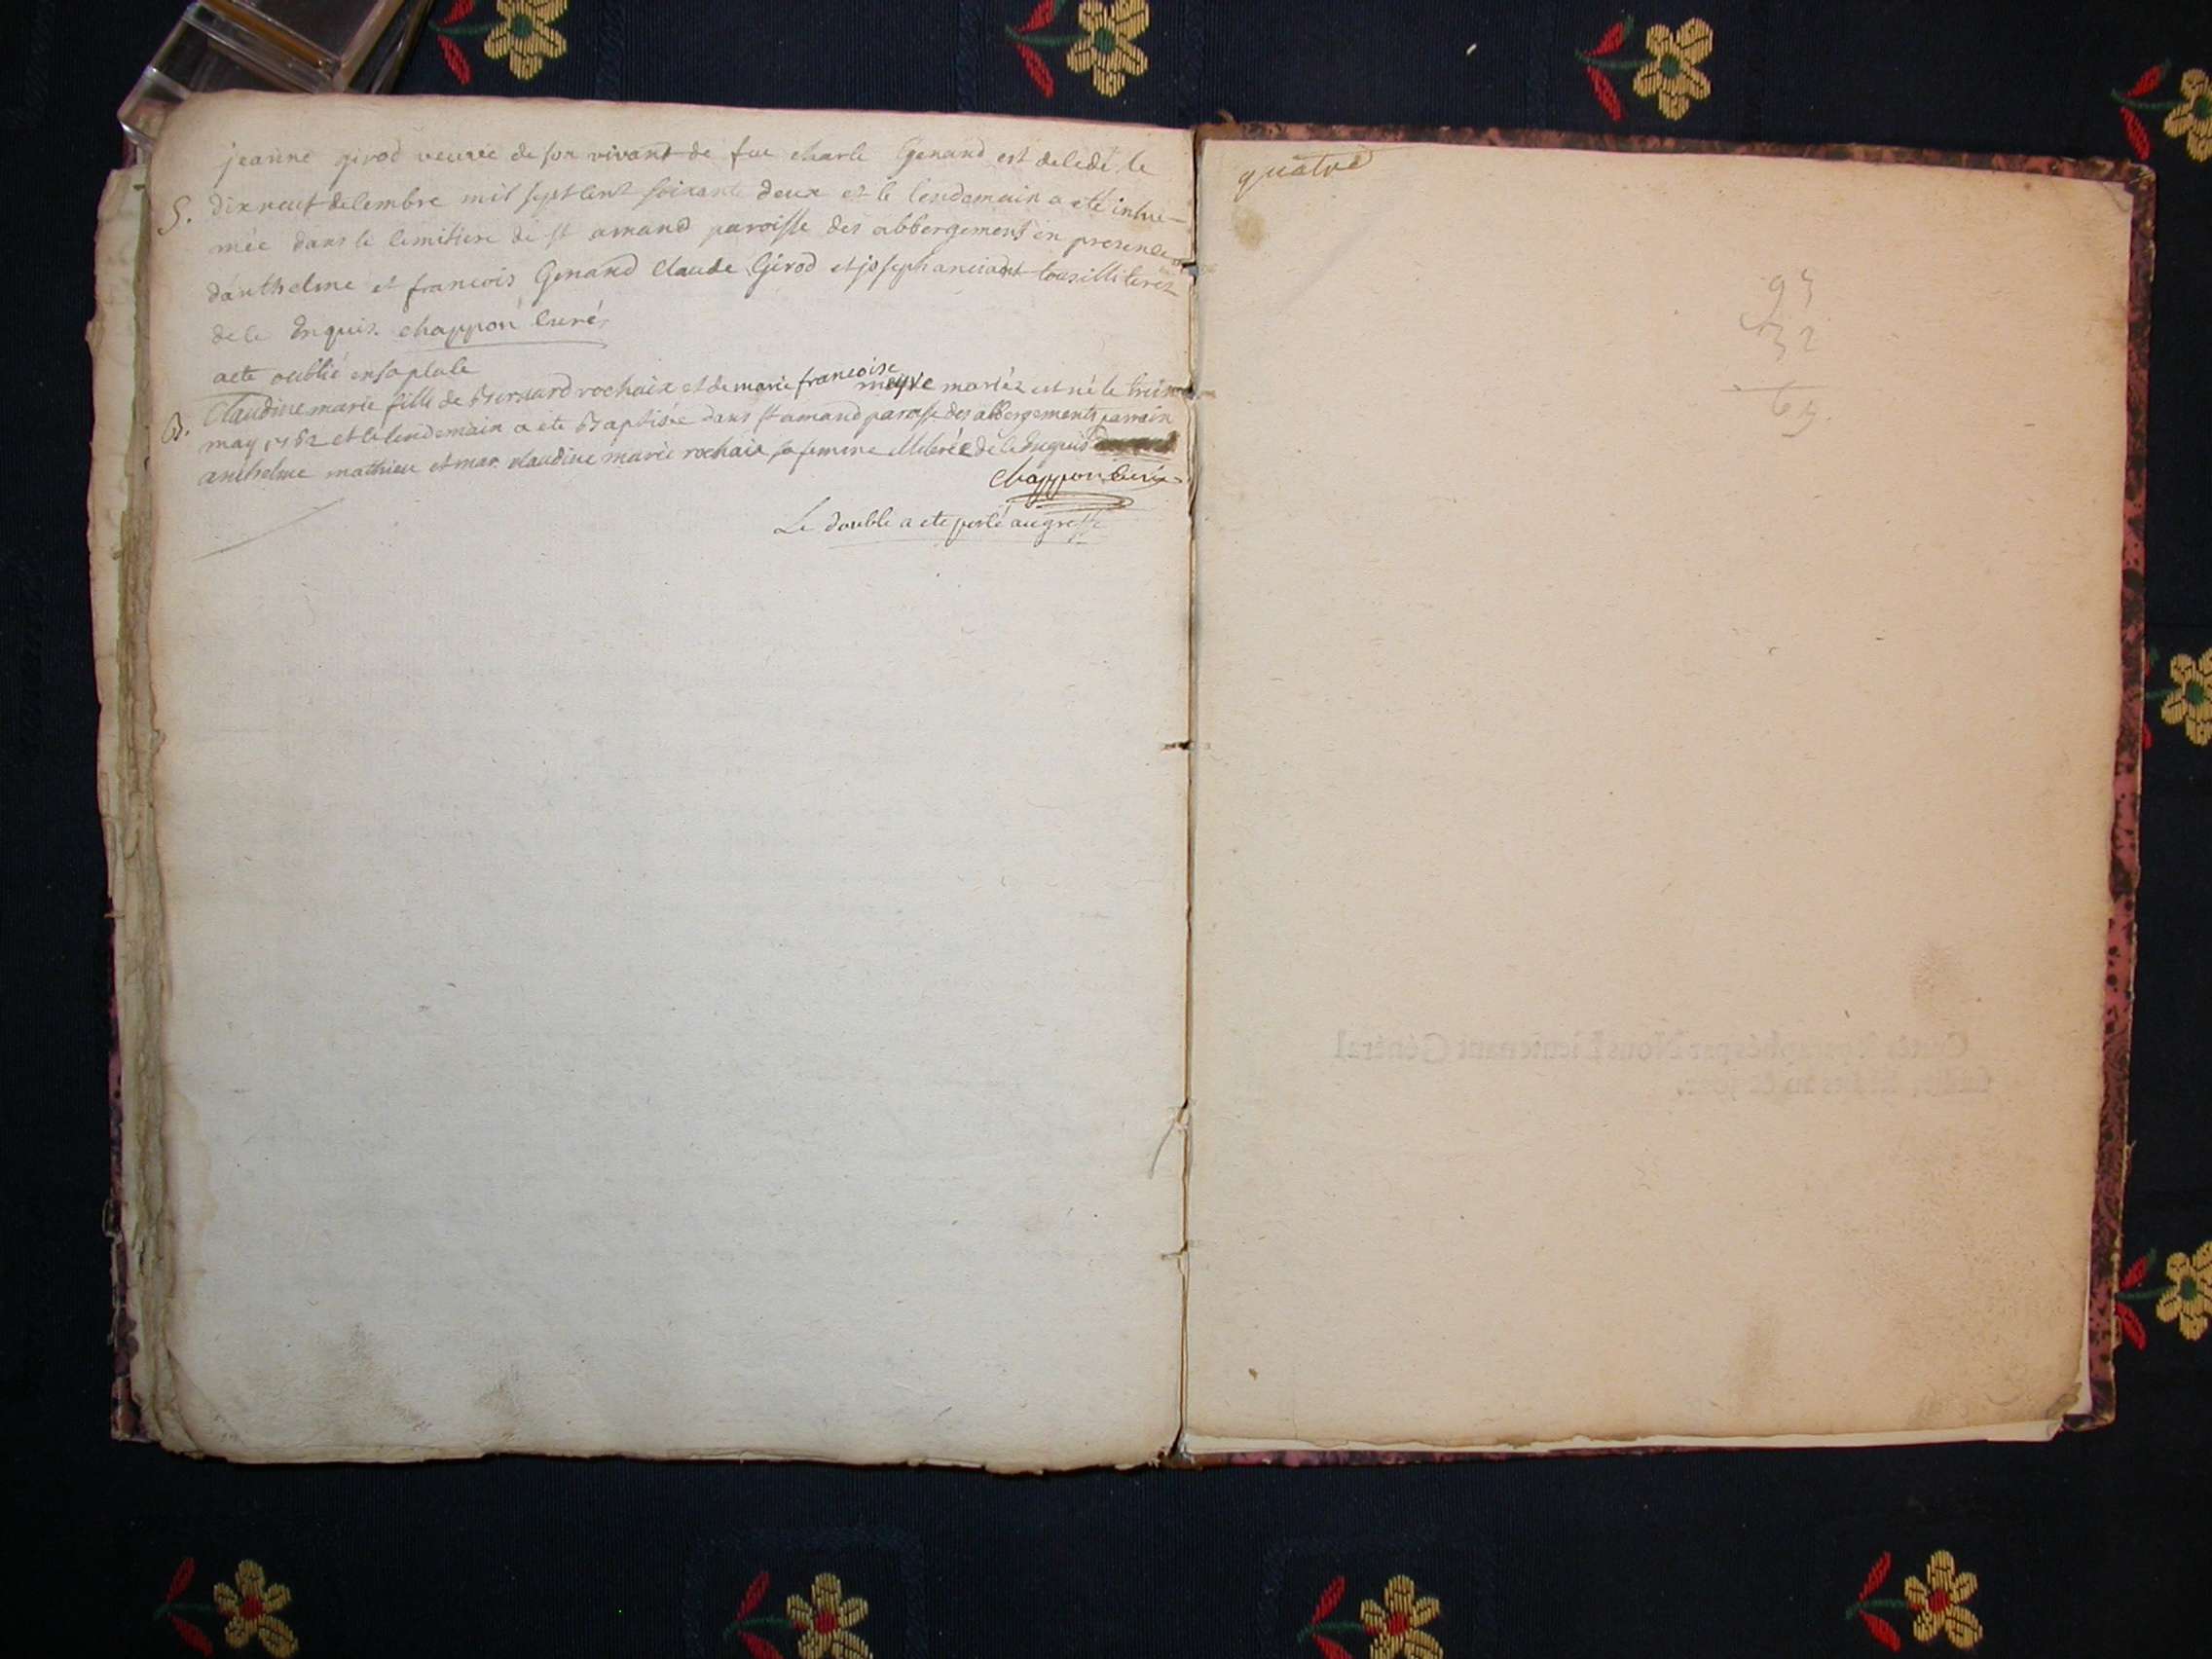 jeanne girod veuve de son vivant de feu charle Genand est decedé le
S. dix neuf decembre mil sept cent soixante deux et le lendemain a eté inhu-
mée dans le cemitiere de st amand paroisse des abbergements en presence
danthelme et francois Genand Claude Girod et joseph anciant tous illiterez
de ce Enquis. chappon curé
acte oublié en sa place
B. Claudine marie fille de Bernard rochaix et de marie francoise meyve mariéz est né le
may 1762 et le lendemain a ete Baptisée dans st amand paroisse des abbergements parrain
anthelme mathieu et mar. claudine marie rochaix sa femme illiterée de ce Enquis
chappon Curé
Le double a ete porté au greffe
quatre
Cottés & paraphés par Nous Lieutenant Général